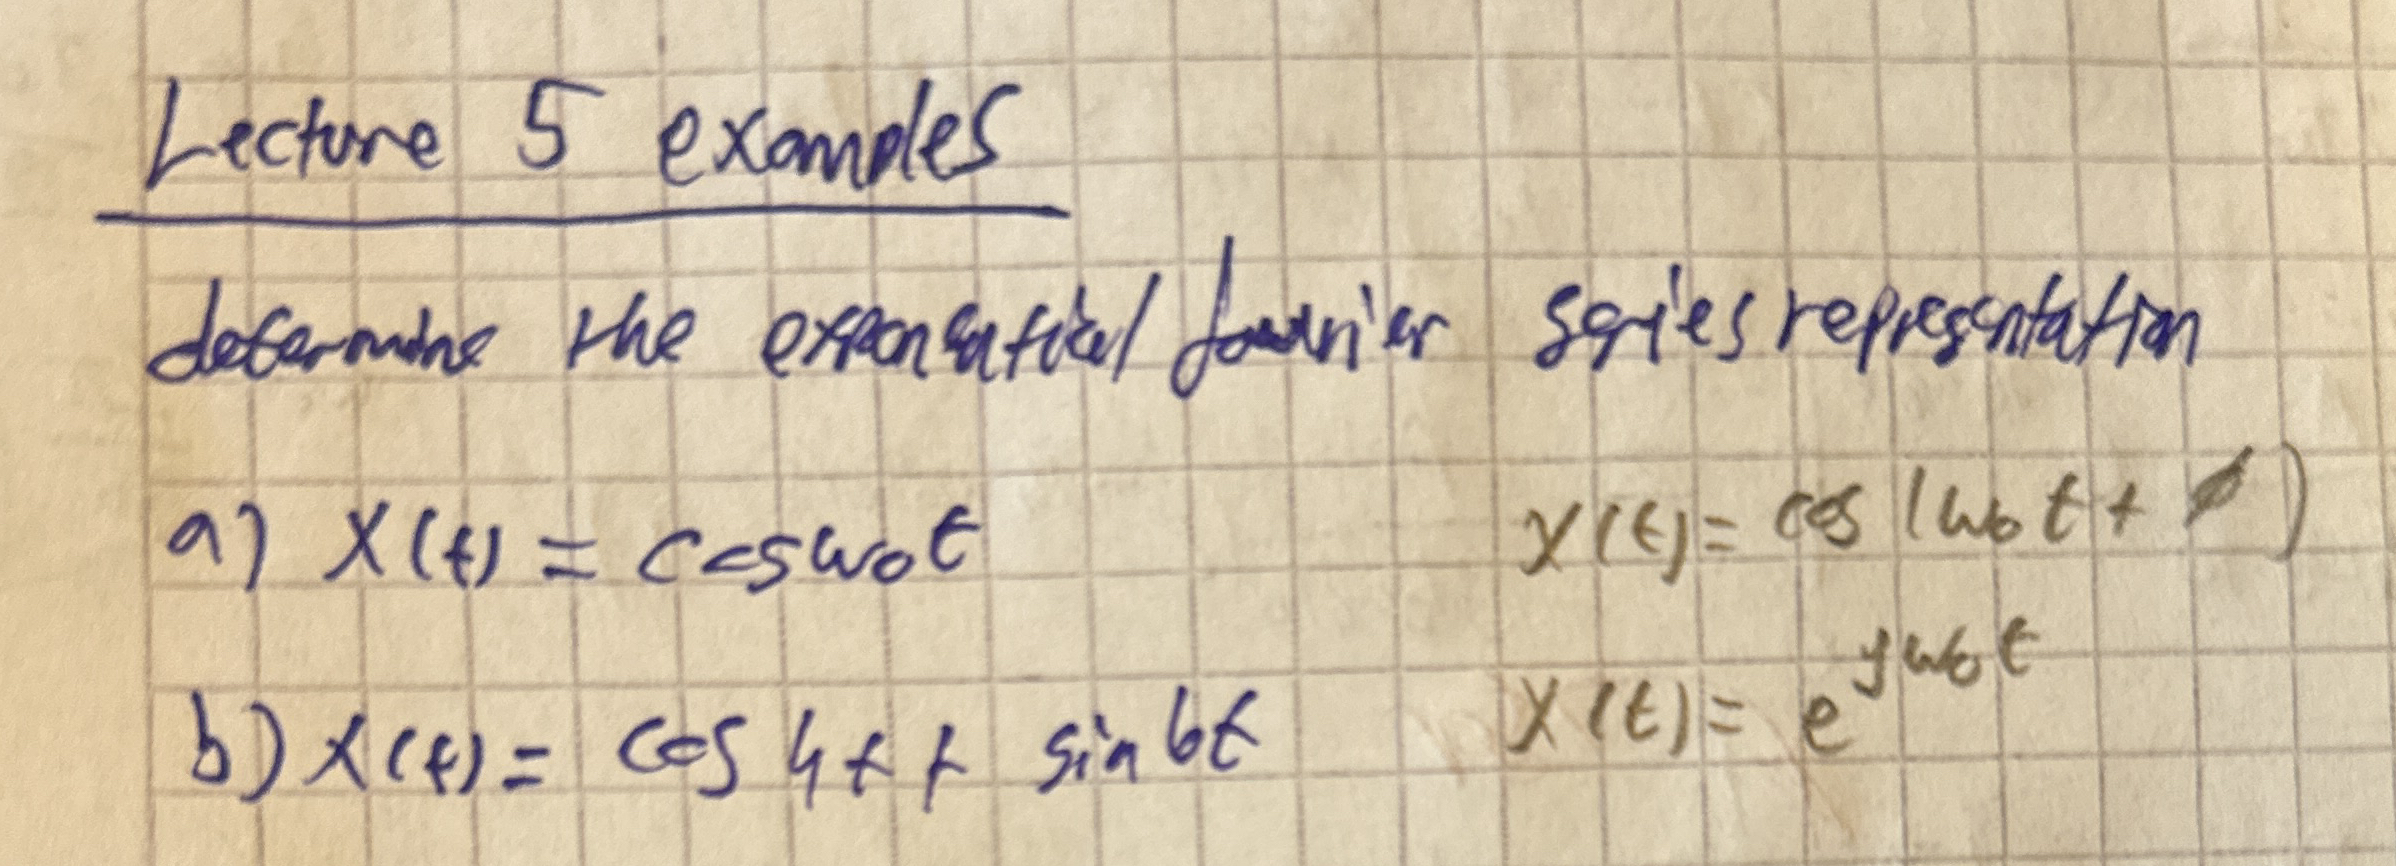 Lecture 5 examples
determine the exponential fourier series representation
a) x(t) = cos ω₀t
x(t) = cos (ω₀t + φ)
b) x(t) = cos 4t + sin 6t
x(t) = e^jω₀t